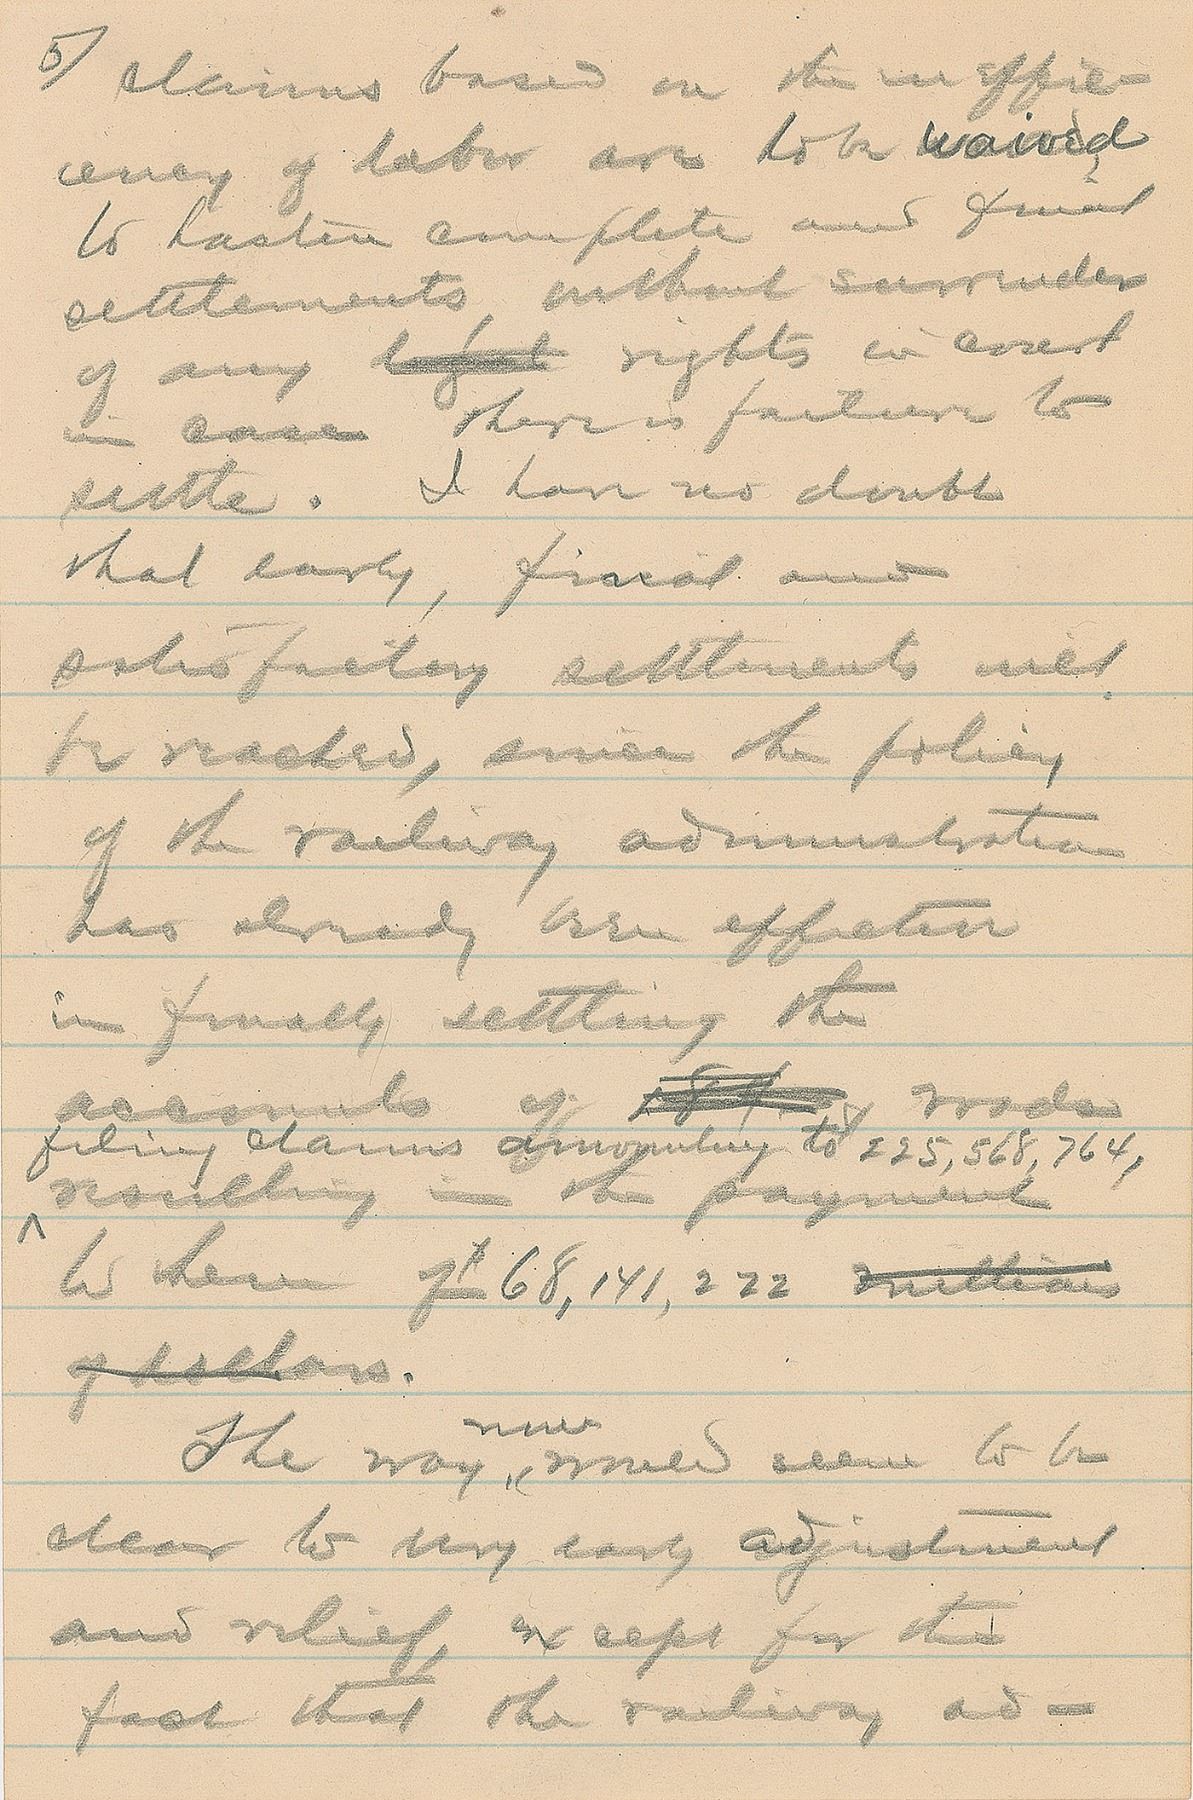 5/ claims based on the ineffici-
ency of labor are to be waived,
to hasten complete and final
settlements without surrender
of any legal rights in court
in case there is failure to
settle. I have no doubt
that early, final and
satisfactory settlements will
be reached, since the policy
of the railway administration
has already been effective
in finally settling the
accounts of roads
filing claims amounting to $225,568,764,
^ resulting in the payment
to them of $68,141,222 millions
of dollars.
now
The way, ^ would seem to be
clear to very early adjustment
and relief, except for the
fact that the railway ad-